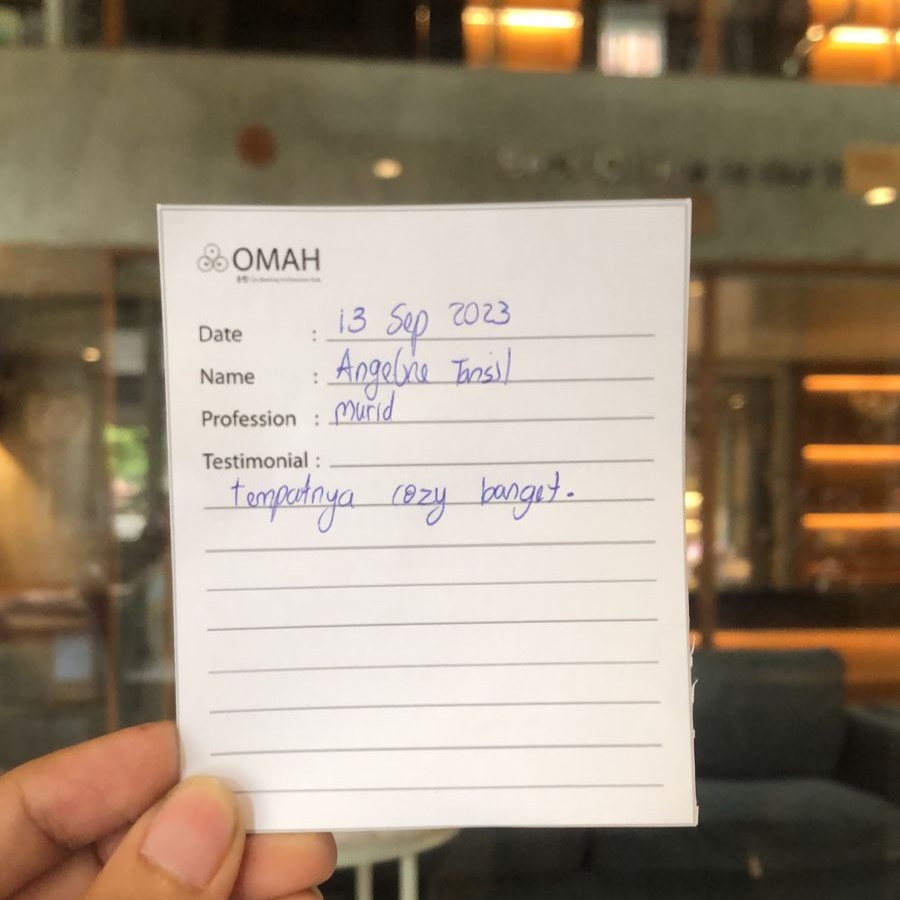 OMAH
Date : 13 Sep 2023
Name : Angeline Tansil
Profession : Murid
Testimonial :
tempatnya cozy banget.